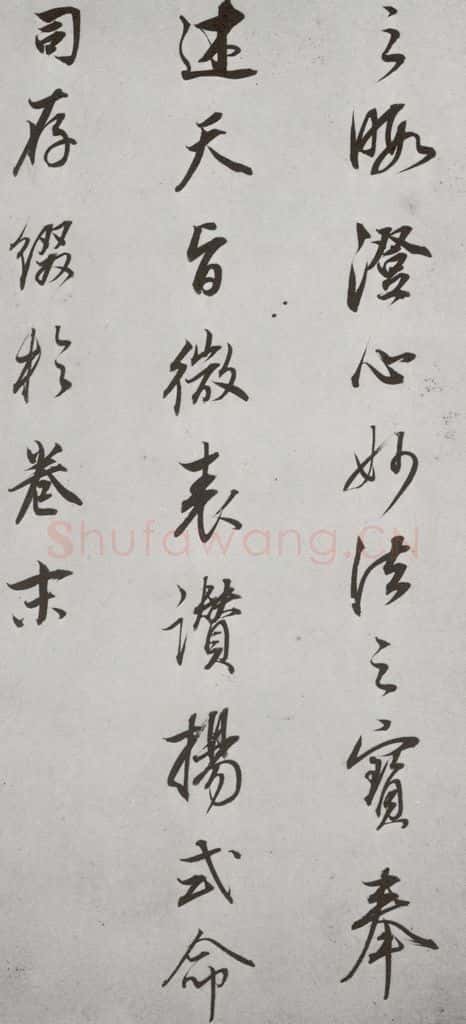 之暇澄心妙法之寶奉
述天旨微表讚揚式命
司存綴於卷末
Shufawang.CN